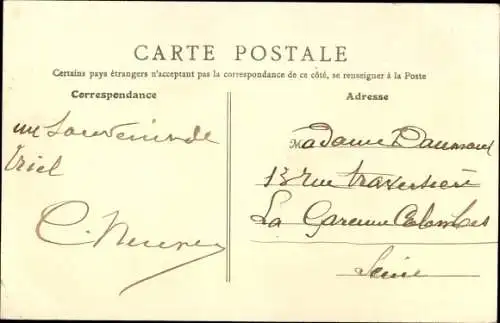 CARTE POSTALE
Certains pays étrangers n'acceptant pas la correspondance de ce côté, se renseigner à la Poste
Correspondance
Adresse
un souvenir de
Triel
C.
Madame
13 rue traversière
La Garenne Colombes
Seine